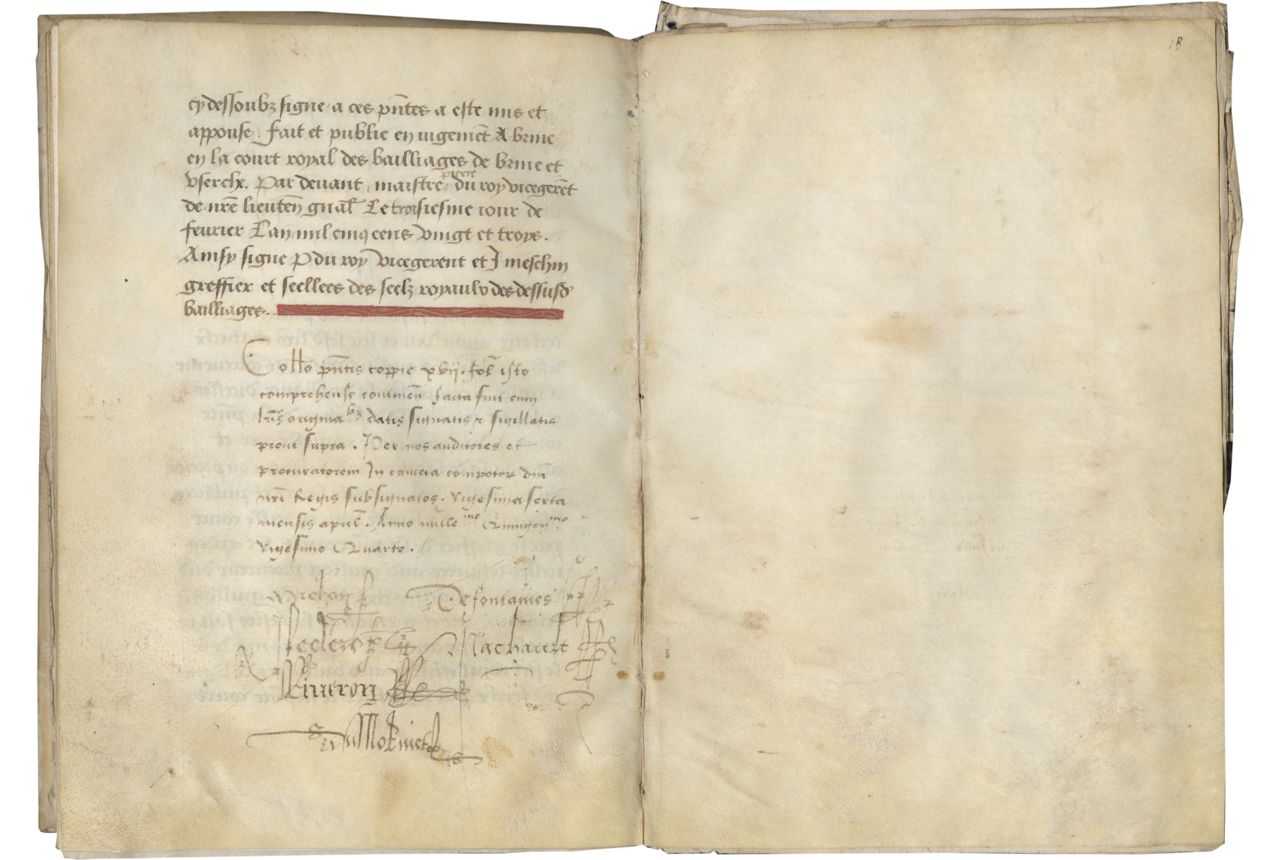 cy dessoubz signe a ces pñtes a este mis et
appouse. Fait et publie en iugemẽt A brıue
en la court royal des bailliages de brıue et
vserche. Par deuant maistre pierre du roy vicegerẽt
de nr̃e lieuteñ gñal Le troisiesme iour de
feurier Lan mil cinq cens vingt et troys.
Ainsy signe P du roy vicegerent et J meschin
greffier et seellees des seelz royaulx des dessusd
bailliages.
Collo pñtis coppie xvij. fol isto
comprehense continen facta fuit cum
lr̃is originalibz datis signatis et sigillatis
prout supra. Per nos auditores et
procuratorem In camera compotor dni
nr̃i Regis subsignatos. vigesima sexta
mensis april. Anno mille.mo Quingen.mo
vigesimo Quarto.
Defontaines
Leclerc Machault
Viueron
18